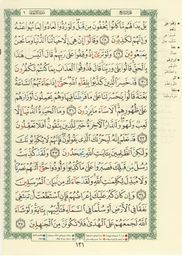 بَلْ بَدَا لَهُم مَّا كَانُوا۟ يُخْفُونَ مِن قَبْلُ وَلَوْ رُدُّوا۟ لَعَادُوا۟ لِمَا نُهُوا۟ عَنْهُ
وَإِنَّهُمْ لَكَٰذِبُونَ ٢٨ وَقَالُوٓا۟ إِنْ هِىَ إِلَّا حَيَاتُنَا ٱلدُّنْيَا وَمَا نَحْنُ
بِمَبْعُوثِينَ ٢٩ وَلَوْ تَرَىٰٓ إِذْ وُقِفُوا۟ عَلَىٰ رَبِّهِمْ قَالَ أَلَيْسَ هَٰذَا
بِٱلْحَقِّ قَالُوا۟ بَلَىٰ وَرَبِّنَا قَالَ فَذُوقُوا۟ ٱلْعَذَابَ بِمَا كُنتُمْ تَكْفُرُونَ
٣٠ قَدْ خَسِرَ ٱلَّذِينَ كَذَّبُوا۟ بِلِقَآءِ ٱللَّهِ حَتَّىٰٓ إِذَا جَآءَتْهُمُ ٱلسَّاعَةُ
بَغْتَةً قَالُوا۟ يَٰحَسْرَتَنَا عَلَىٰ مَا فَرَّطْنَا فِيهَا وَهُمْ يَحْمِلُونَ أَوْزَارَهُمْ
عَلَىٰ ظُهُورِهِمْ أَلَا سَآءَ مَا يَزِرُونَ ٣١ وَمَا ٱلْحَيَوٰةُ ٱلدُّنْيَآ إِلَّا لَعِبٌ
وَلَهْوٌ وَلَلدَّارُ ٱلْـَٔاخِرَةُ خَيْرٌ لِّلَّذِينَ يَتَّقُونَ أَفَلَا تَعْقِلُونَ
٣٢ قَدْ نَعْلَمُ إِنَّهُۥ لَيَحْزُنُكَ ٱلَّذِى يَقُولُونَ فَإِنَّهُمْ لَا يُكَذِّبُونَكَ
وَلَٰكِنَّ ٱلظَّٰلِمِينَ بِـَٔايَٰتِ ٱللَّهِ يَجْحَدُونَ ٣٣ وَلَقَدْ كُذِّبَتْ
رُسُلٌ مِّن قَبْلِكَ فَصَبَرُوا۟ عَلَىٰ مَا كُذِّبُوا۟ وَأُوذُوا۟ حَتَّىٰٓ أَتَىٰهُمْ نَصْرُنَا
وَلَا مُبَدِّلَ لِكَلِمَٰتِ ٱللَّهِ وَلَقَدْ جَآءَكَ مِن نَّبَإِى۟ ٱلْمُرْسَلِينَ
٣٤ وَإِن كَانَ كَبُرَ عَلَيْكَ إِعْرَاضُهُمْ فَإِنِ ٱسْتَطَعْتَ أَن تَبْتَغِىَ
نَفَقًا فِى ٱلْأَرْضِ أَوْ سُلَّمًا فِى ٱلسَّمَآءِ فَتَأْتِيَهُم بِـَٔايَةٍ وَلَوْ شَآءَ
ٱللَّهُ لَجَمَعَهُمْ عَلَى ٱلْهُدَىٰ فَلَا تَكُونَنَّ مِنَ ٱلْجَٰهِلِينَ ٣٥
١٣١